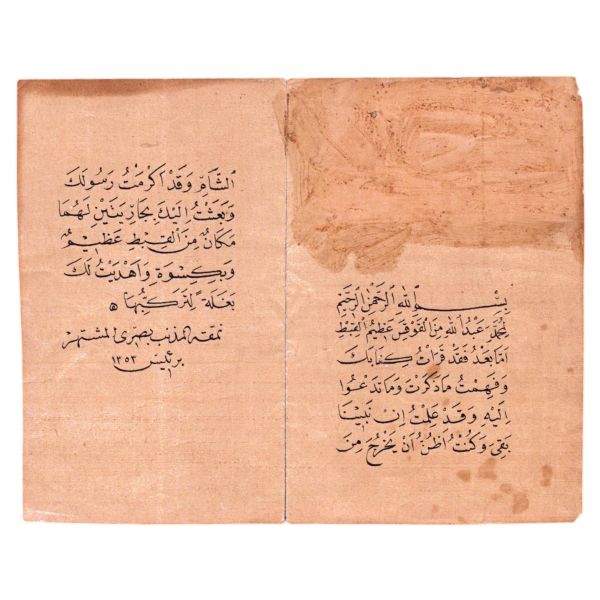 بسم الله الرحمن الرحيم
لمحمد بن عبد الله من المقوقس عظيم القبط
اما بعد فقد قرأت كتابك
وفهمت ما ذكرت وما تدعوا
اليه وقد علمت ان نبينا
بقي وكنت اظن أن يخرج من
الشام وقد اكرمت رسولك
وبعثت اليك بجاريتين لهما
مكان من القبط عظيم
وبكسوة واهديت لك
بغلة لتركبها ه
نمقه المذنب بصرى المشتهر
برئيس ١٣٥٣